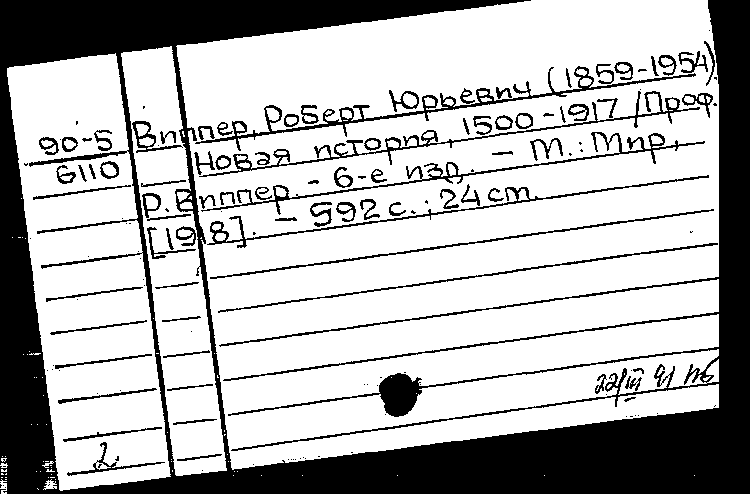 90-5 Виппер, Роберт Юрьевич (1859-1954).
6110 Новая история, 1500-1917 / Проф.
Р. Виппер. - 6-е изд. - М.: Мир,
[1918]. - 592 с.; 24 cm.
22/III 91
2